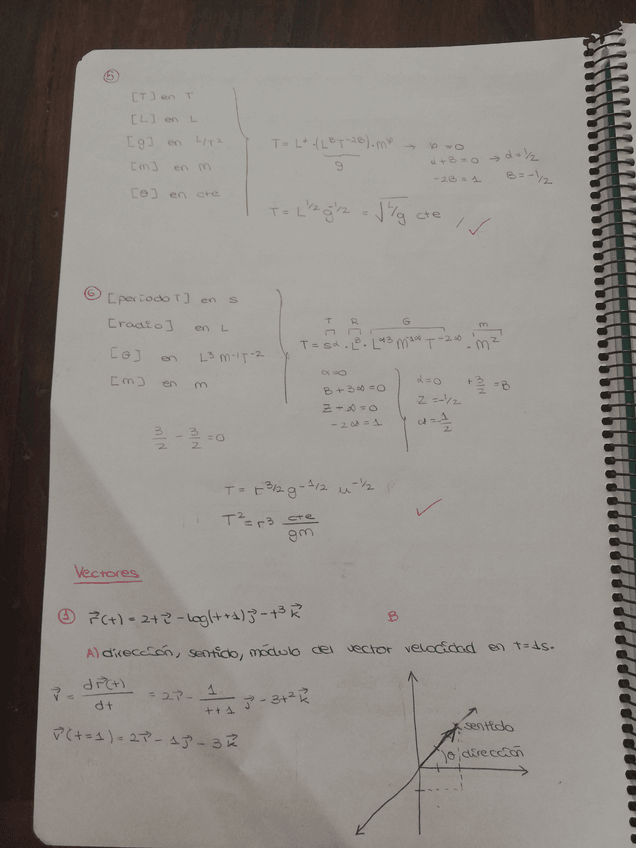 5
[T] en T
[L] en L
[g] en L/T²
[m] en m
[θ] en cte
T = Lᵅ · (LᴮT⁻²ᴮ) · mᵟ → γ = 0
g
α + B = 0 → α = 1/2
-2B = 1 B = -1/2
T = L^1/2 g^-1/2 = √L/g cte /✓
6 [período T] en s
[radio] en L
[G] en L³ M⁻¹ T⁻²
[m] en m
T R G m
α = 0
B + 3α = 0
Z - α = 0
-2α = 1
α = 0 + 3/2 = B
Z = -1/2
α = -1/2
3/2 - 3/2 = 0
T = r^3/2 g^-1/2 μ^-1/2
T² = r³ cte/gm ✓
Vectores
1 r⃗(t) = 2t i⃗ - log(t+1) j⃗ - t³ k⃗ B
A) dirección, sentido, módulo del vector velocidad en t=1s.
v⃗ = dr⃗(t)/dt = 2i⃗ - 1/t+1 j⃗ - 3t² k⃗
v⃗(t=1) = 2i⃗ - 1j⃗ - 3k⃗
sentido
θ dirección